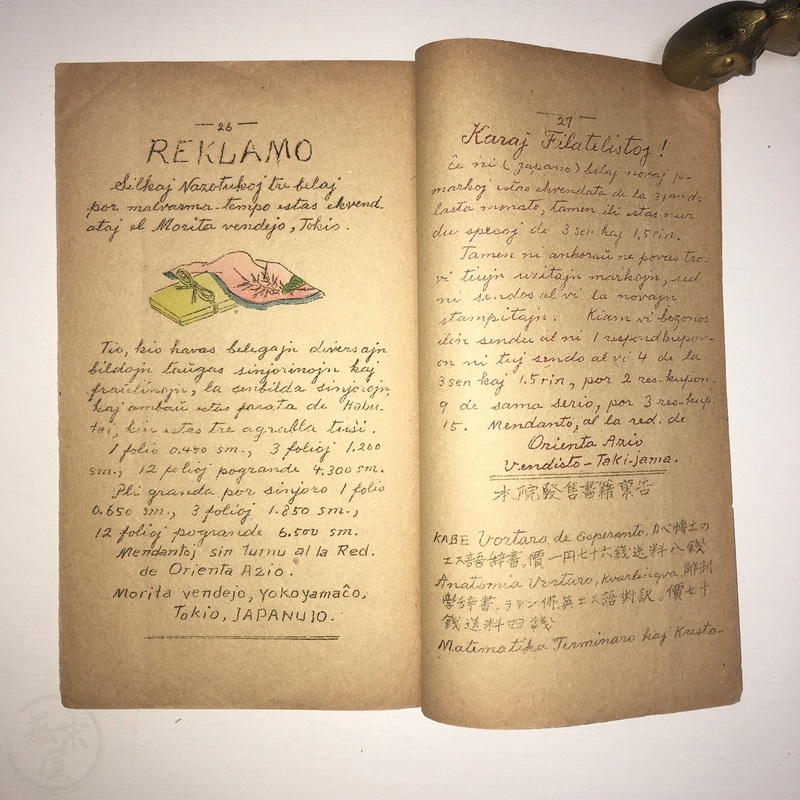 — 26 —
REKLAMO
Silkaj Naztukoj tre belaj
por malvarma-tempo estas ekvend-
ataj el Morita vendejo, Tokio.
Tio, kio havas belegajn diversajn
bildojn taŭgas sinjorinojn kaj
fraŭlinojn, la senbilda sinjorojn,
kaj ambaŭ estas farata de Habu-
tai, kiu estas tre agrabla tuŝi.
1 folio 0.450 sm., 3 folioj 1.200
sm., 12 folioj pogrande 4.300 sm.
Pli granda por sinjoro 1 folio
0.650 sm., 3 folioj 1.850 sm.,
12 folioj pogrande 6.500 sm.
Mendantoj sin turnu al la Red.
de Orienta Azio.
Morita vendejo, Yokoyamaĉo,
Tokio, JAPANUJO.
— 27 —
Karaj Filatelistoj!
Ĉe ni (Japano) belaj novaj p-
markoj estas ekvendata de la 31a de
lasta monato, tamen ili estas nur
du specoj de 3 sen kaj 1,5 rin.
Tamen ni ankoraŭ ne povas tro-
vi tiujn uzitajn markojn, sed
ni sendos al vi la novajn
stampitajn. Kiam vi bezonos
ilin sendu al ni 1 respondkupon-
on ni tuj sendo al vi 4 de la
3 sen kaj 1.5 rin, por 2 res-kupon.
9 de sama serio, por 3 res-kup.
15. Mendanto, al la red. de
Orienta Azio
Vendisto-Taki-jama.
本院發售書籍稟告
KABE Vortaro de Esperanto, カベ博士の
エス語辞書。價一円七十六錢送料八錢
Anatomia Vortaro, kvarlingva, 解剖
學辞書。ラテン佛英エス語對訳。價七十
錢送料四錢
Matematika Terminaro kaj Kresto-